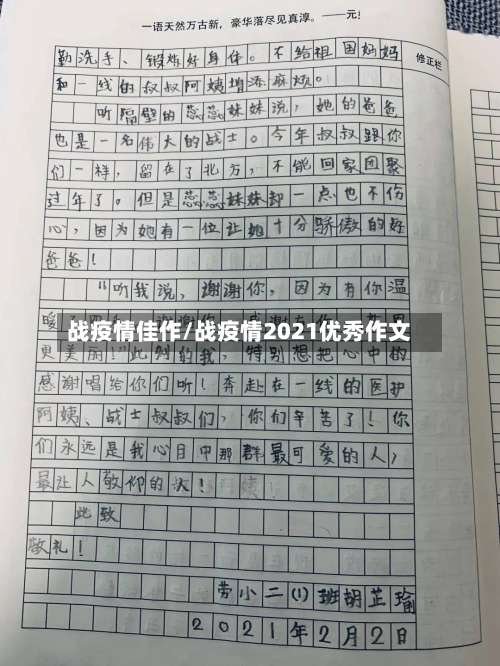 一语天然万古新，豪华落尽见真淳。——元!
修正栏
勤洗手、锻炼好身体。不给祖国妈妈
和一线的叔叔阿姨增添麻烦。
听隔壁的蕊蕊妹妹说，她的爸爸
也是一名伟大的战士。今年叔叔跟你
们一样，留在了北方，不能回家团聚
过年了。但是蕊蕊妹妹却一点也不伤
心，因为她有一位让她十分骄傲的好
爸爸！
“听我说，谢谢你，因为有你温
暖了四
战疫情佳作/战疫情2021优秀作文
更美丽！”此刻的我，特别想把心中的
感谢唱给你们听！奔赴在一线的医护
阿姨、战士叔叔们，你们辛苦了！你
们永远是我心目中那群最可爱的人，
最让人敬仰的人！
此致
敬礼！
劳小二(1)班胡芷瑜
2021年2月2日